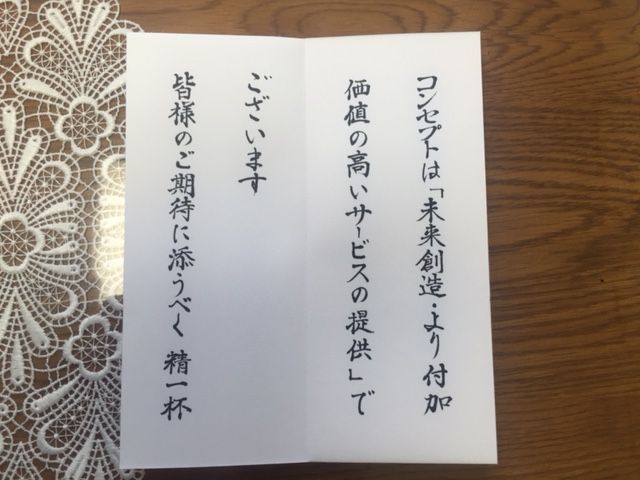 コンセプトは「未来創造・より付加
価値の高いサービスの提供」で
ございます
皆様のご期待に添うべく 精一杯